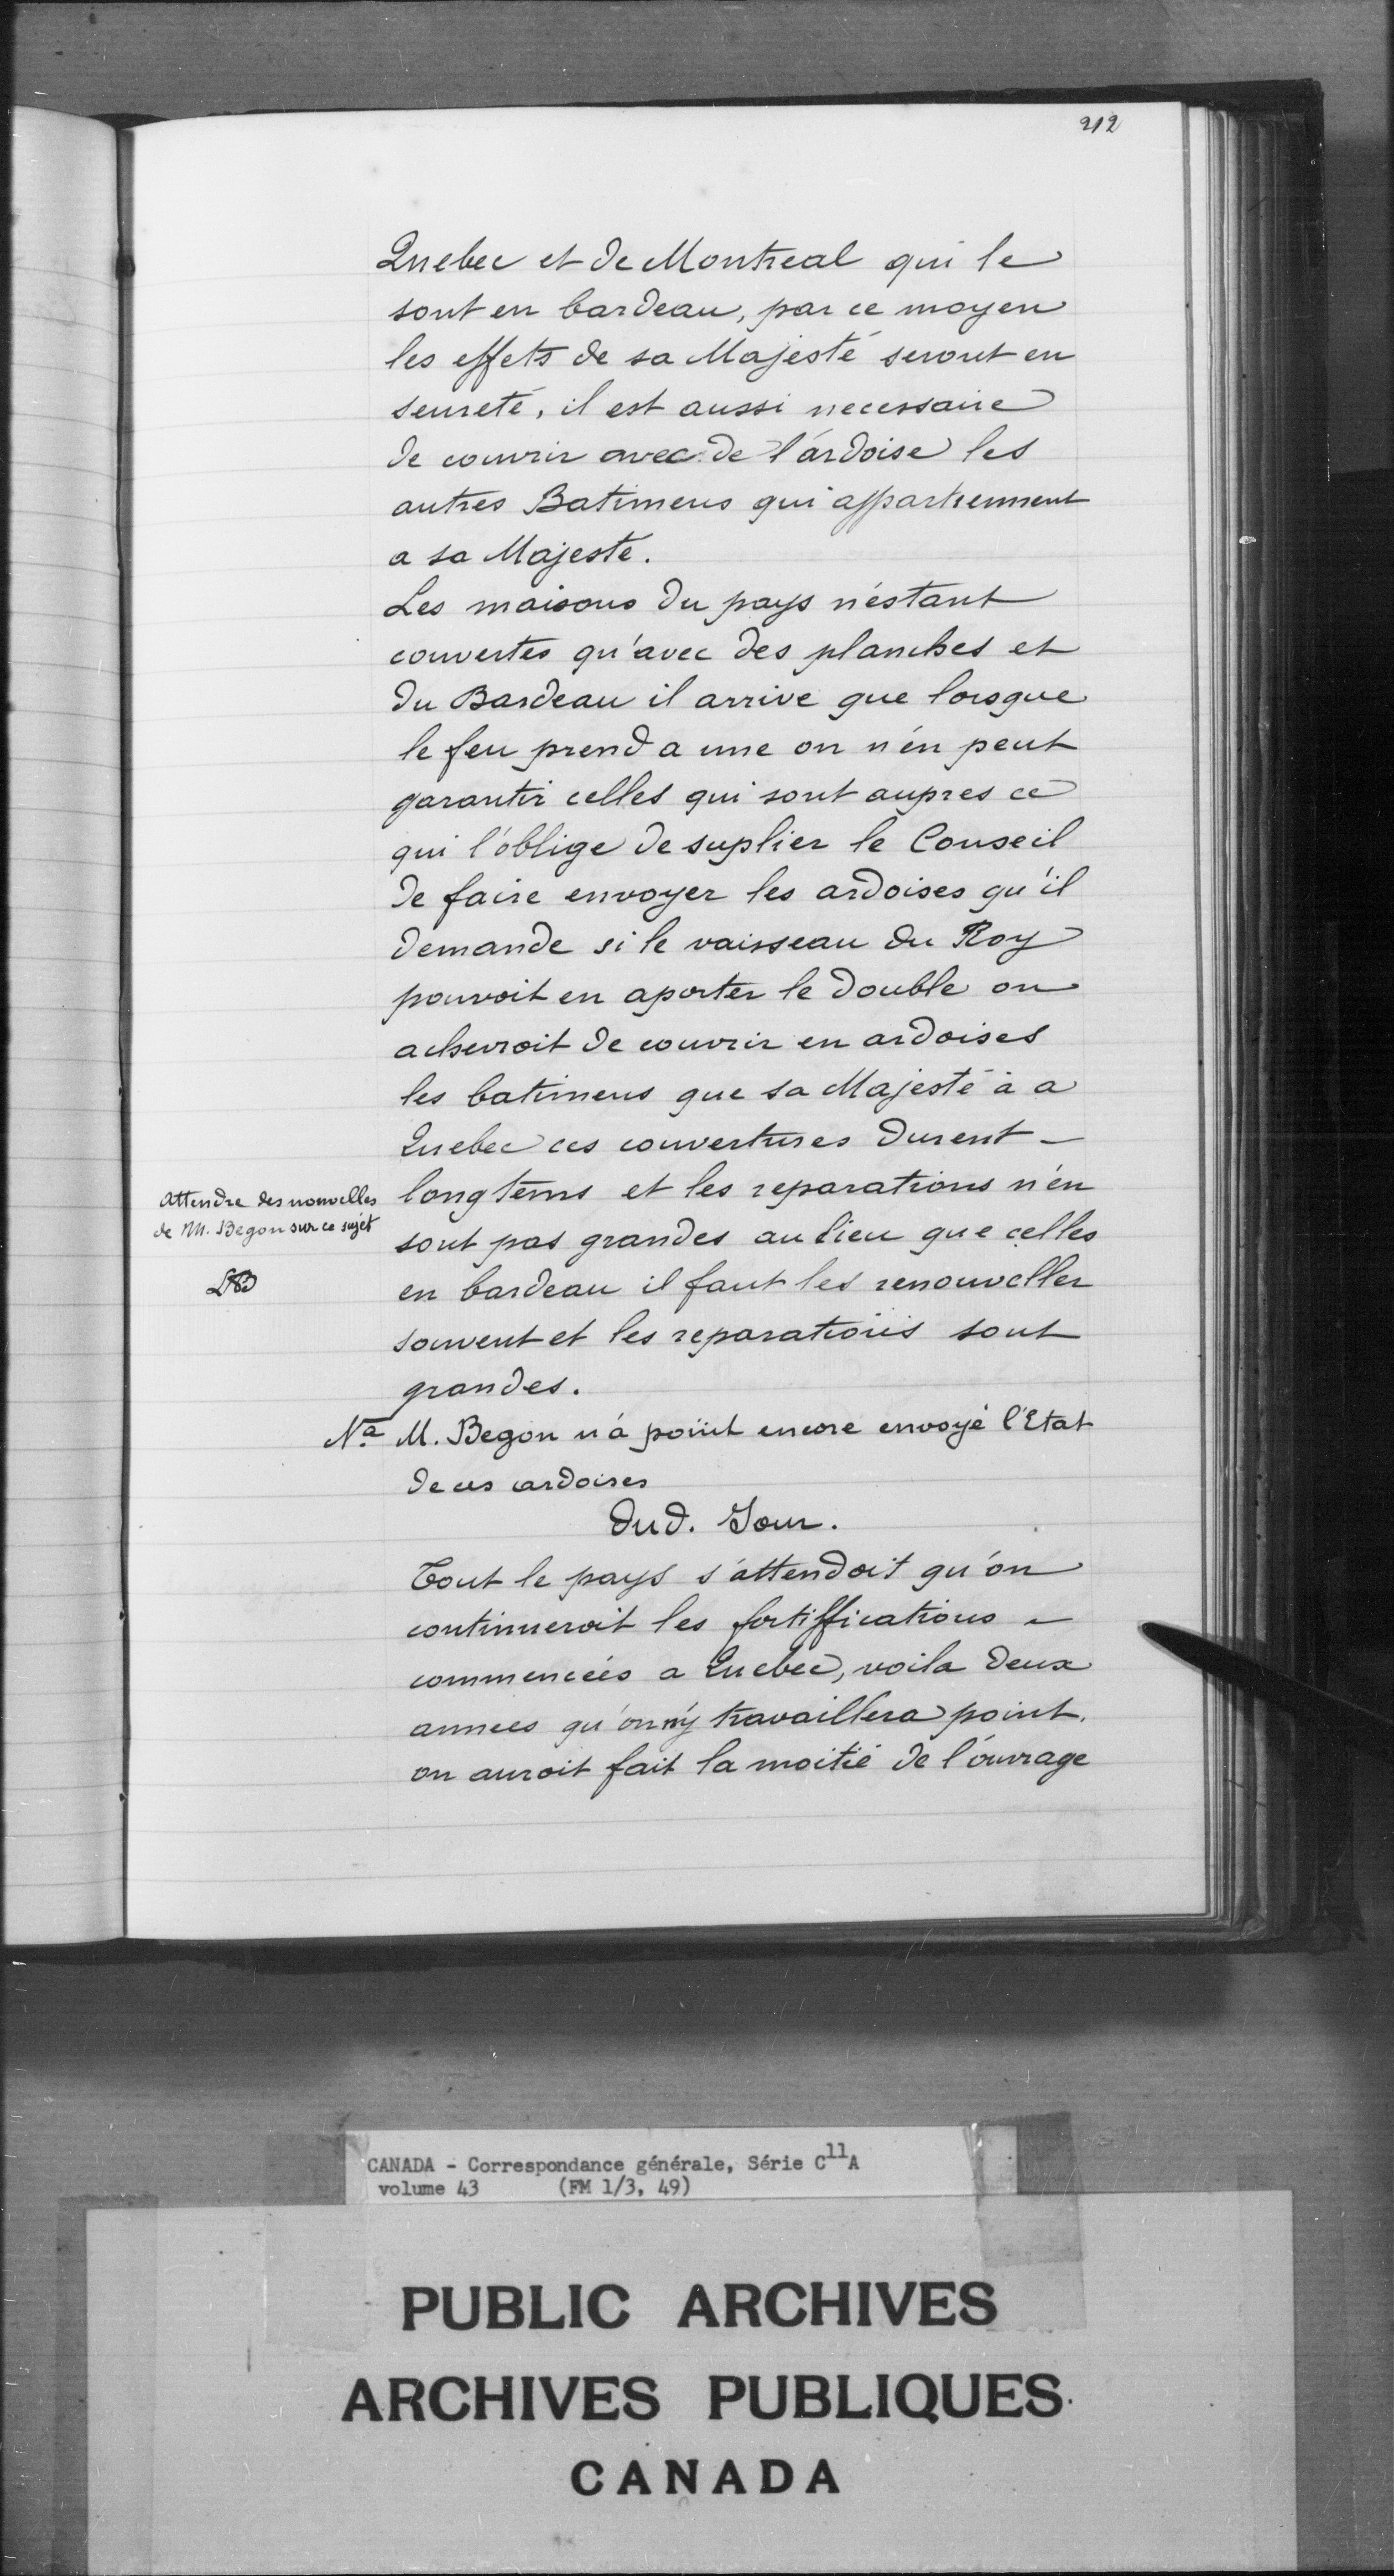 212
Quebec et de Montreal qui le
sont en bardeau, par ce moyen
les effets de sa Majesté seront en
seureté, il est aussi necessaire
de couvrir avec de l'ardoise les
autres Batimens qui appartiennent
a sa Majesté.
Les maisons du pays n'estant
couvertes qu'avec des planches et
du Bardeau il arrive que lorsque
le feu prend a une on n'en peut
garantir celles qui sont aupres ce
qui l'oblige de suplier le Conseil
de faire envoyer les ardoises qu'il
demande si le vaisseau du Roy
pouvoit en aporter le double on
acheveroit de couvrir en ardoises
les batimens que sa Majesté à a
Quebec ces couvertures durent -
longtems et les reparations n'en
sont pas grandes au lieu que celles
en bardeau il faut les renouveller
souvent et les reparations sont
grandes.
attendre des nouvelles
de M. Begon sur ce sujet
Na M. Begon n'a point encore envoyé l'Etat
de ces ardoises
dud. Jour.
Tout le pays s'attendoit qu'on
continueroit les fortiffications -
commencées a Quebec, voila deux
années qu'on n'y travaillera point.
on auroit fait la moitié de l'ouvrage
CANADA - Correspondance générale, Série C11A
volume 43 (FM 1/3, 49)
PUBLIC ARCHIVES
ARCHIVES PUBLIQUES
CANADA